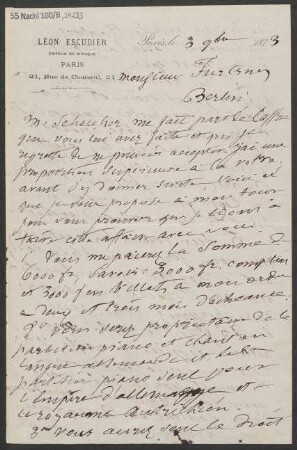 55 Nachl 100/B, 34293
LÉON ESCUDIER
PARIS
21, Rue de Choiseul, 21
Paris le 3 9bre 1873
Monsieur Furstner
Berlin
Mr me fait part de l'offre
que vous lui avez faite et que je
regrette de ne pouvoir accepter. J'ai une
proposition supérieure à la votre
avant d'y donner suite voici ce
que je vous propose à mon tour
pour vous prouver que je tiens à
traiter cette affaire avec vous.
1º Vous me paierez la somme de
6000 fr. savoir 2000 fr. comptant
et en billets à mon ordre
à deux et trois mois d'échéance.
2º Vous serez propriétaire de la
partition piano et chant en
langue allemande et de la
partition piano seul pour
l'empire d'allemagne et
le royaume autrichien.
3º Vous aurez seul le droit